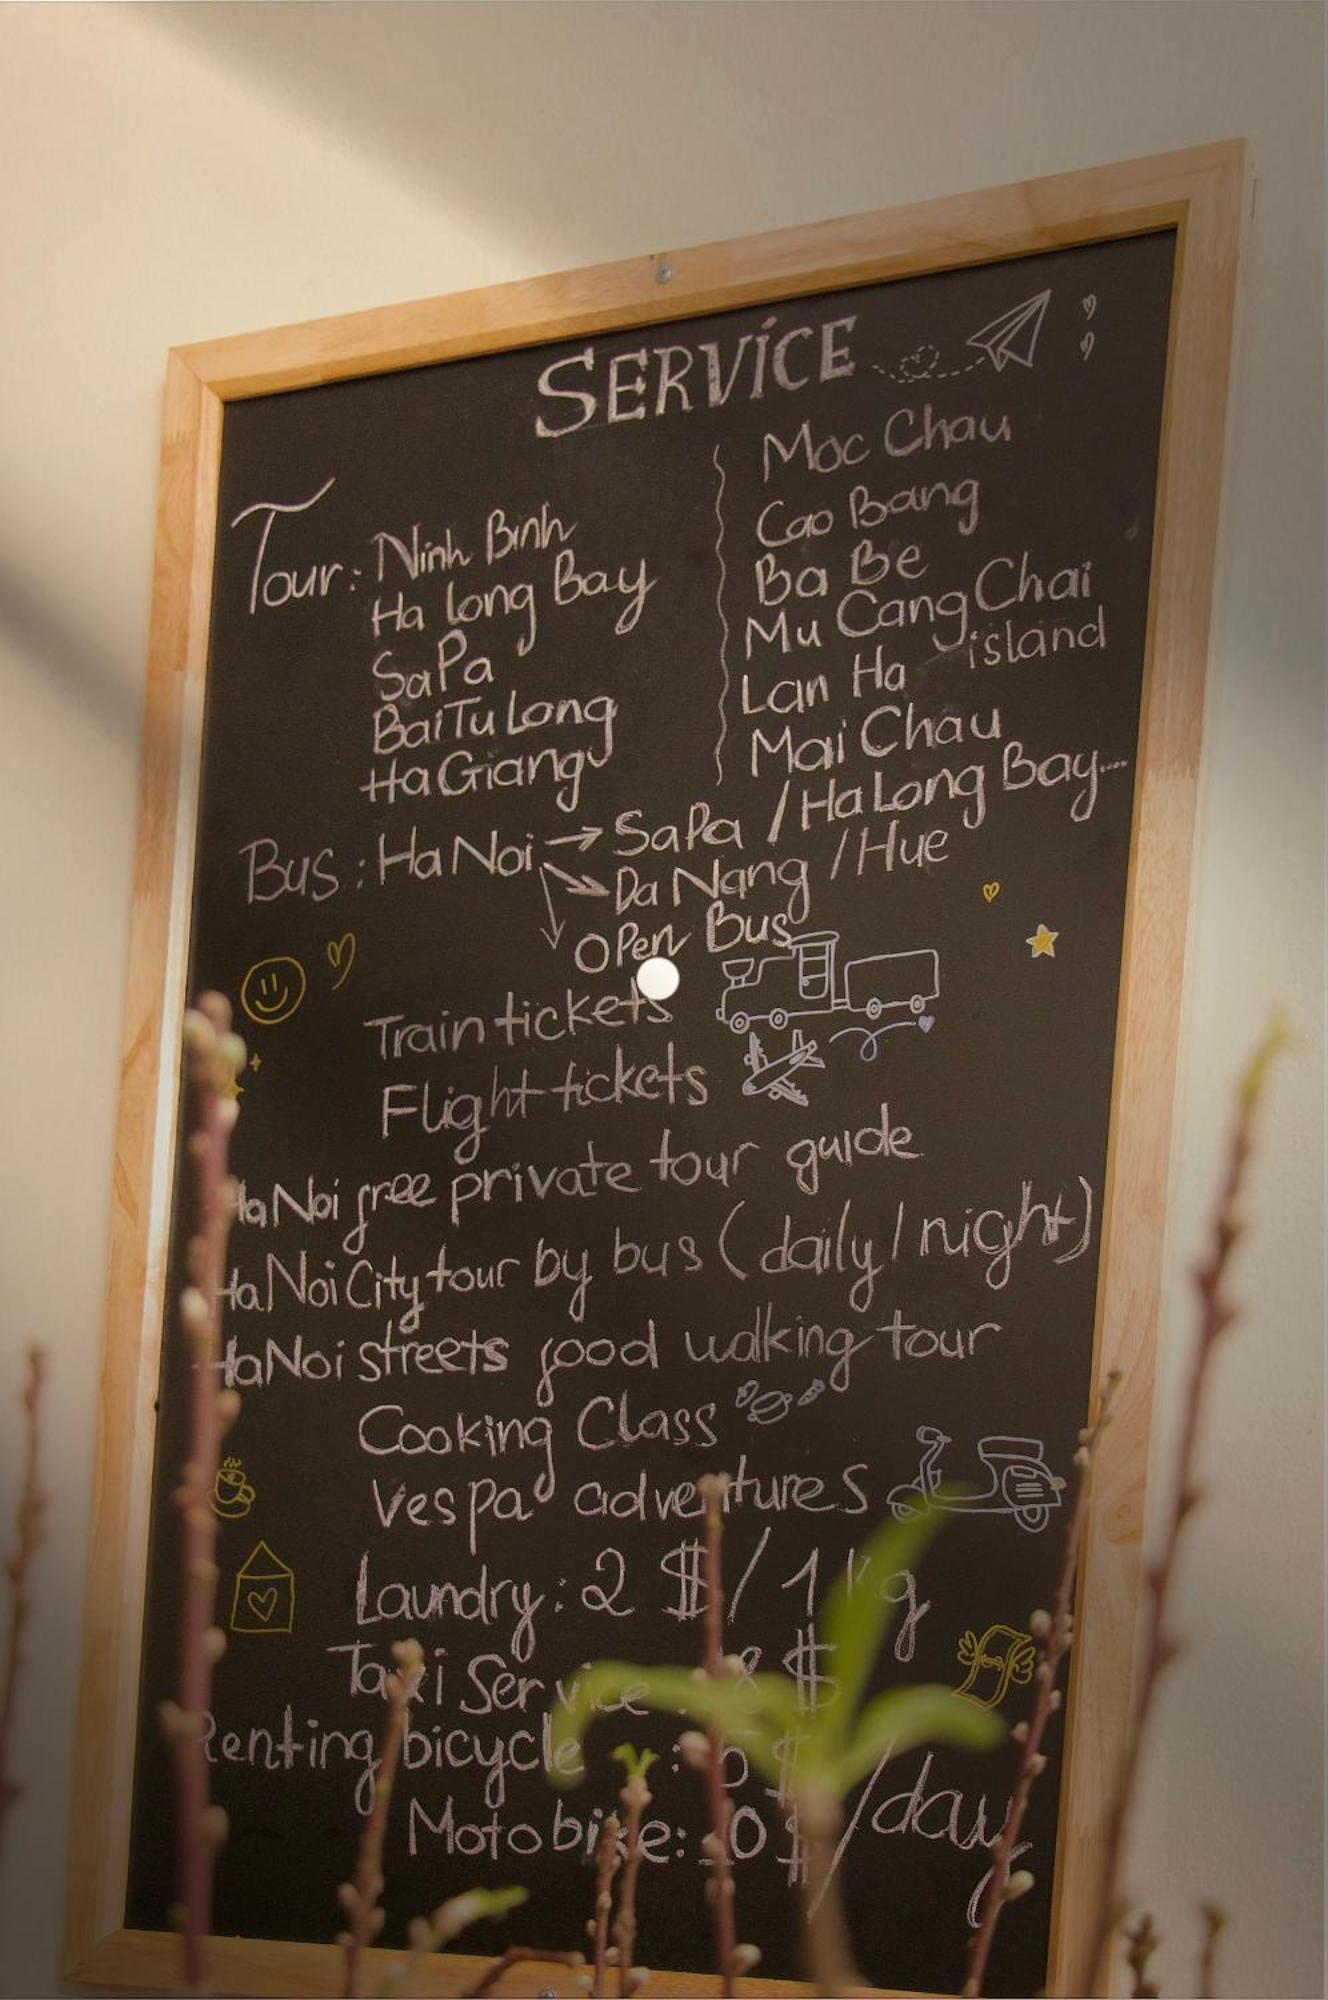 SERVICE
Tour: Ninh Binh
Ha long Bay
SaPa
BaiTu Long
Ha Giang
Moc Chau
Cao Bang
Ba Be
Mu Cang Chai
Lan Ha island
Mai Chau
Bus: Ha Noi → SaPa / Ha Long Bay...
Da Nang / Hue
OPen Bus
Train tickets
Flight tickets
HaNoi free private tour guide
HaNoi City tour by bus (daily / night)
HaNoi streets food walking tour
Cooking Class
Vespa adventures
Laundry: 2 $ / 1 kg
Taxi Service : 8 $
Renting bicycle : $
Motobike: $ /day